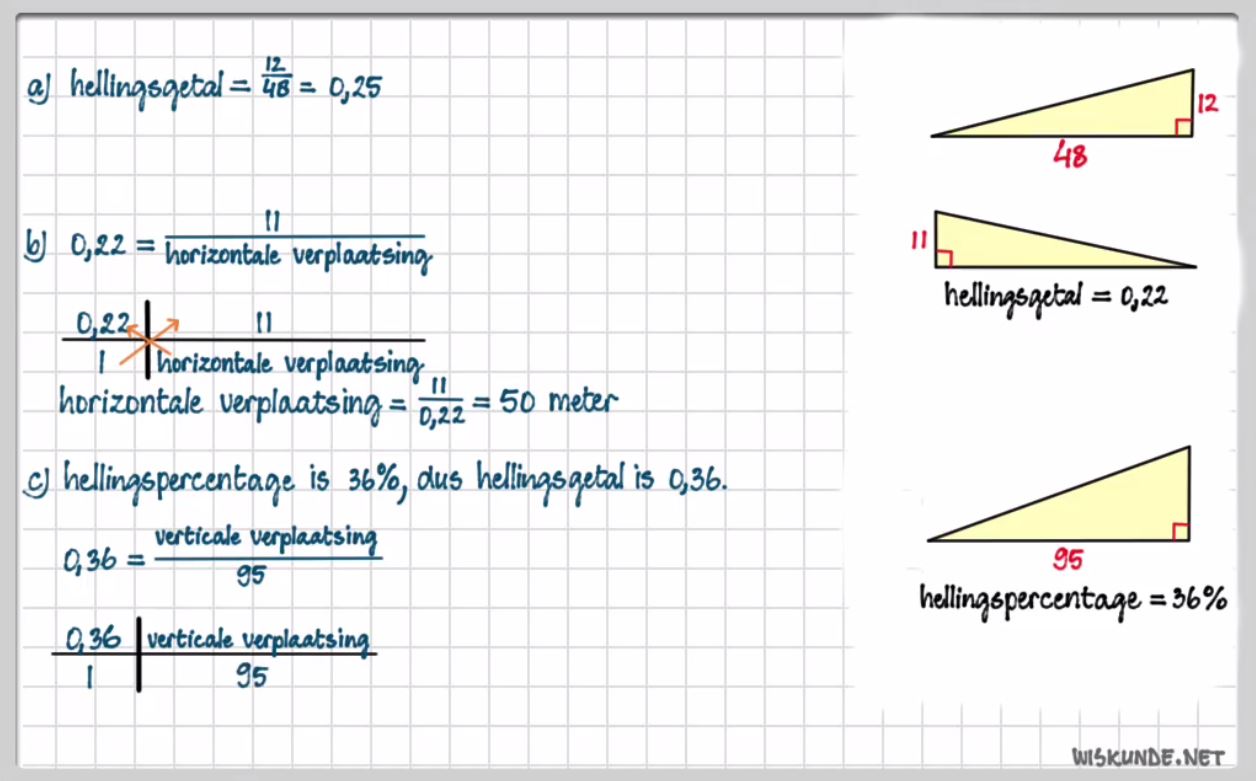 a) hellingsgetal = 12/48 = 0,25
12
48
b) 0,22 = 11/horizontale verplaatsing
11
hellingsgetal = 0,22
0,22 | 11
1 | horizontale verplaatsing
horizontale verplaatsing = 11/0,22 = 50 meter
c) hellingspercentage is 36%, dus hellingsgetal is 0,36.
0,36 = verticale verplaatsing/95
95
hellingspercentage = 36%
0,36 | verticale verplaatsing
1 | 95
WISKUNDE.NET